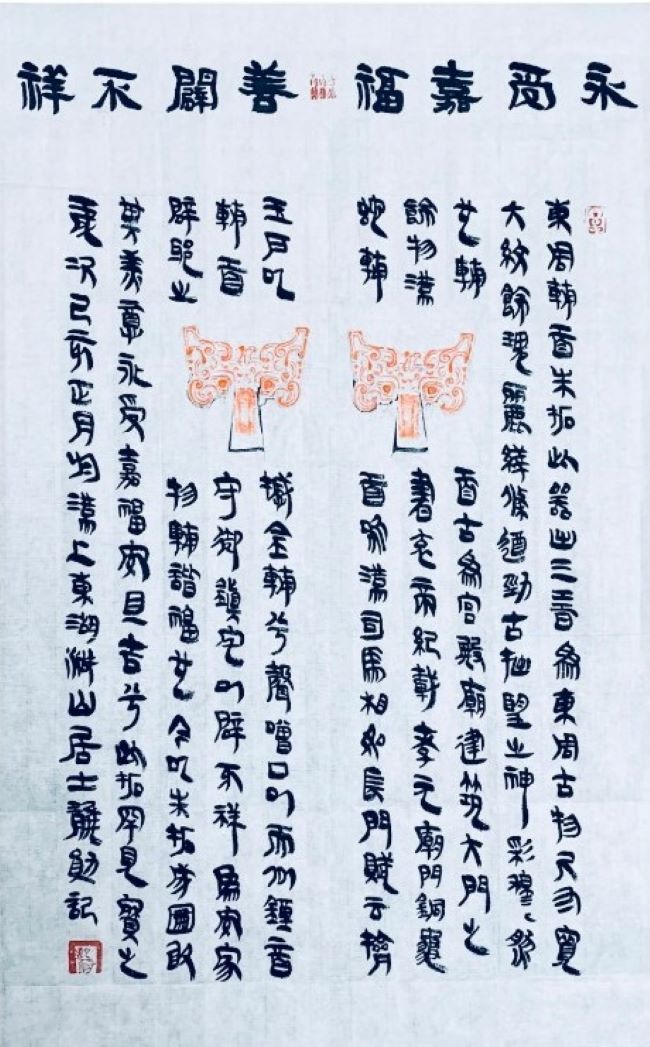 永受嘉福善闢不祥
東周輔首朱拓此器出三晉為東周古物尺寸寬
大紋飾瑰麗綫條遒勁古拙望之神彩穆穆然
其輔首古為宮殿廟建筑大門之
飾物漢書哀帝紀載孝元廟門銅龜
蛇輔首鳴漢司馬相如長門賦云擠
玉戶以撼金輔兮聲噌吰而似鍾音
輔首守御鎮宅以辟不祥為安家
辟邪之物輔諧福其今以朱拓圖啟
其美意永受嘉福安且吉兮此拓罕見寶之
歲次己亥正月上東湖山居士記